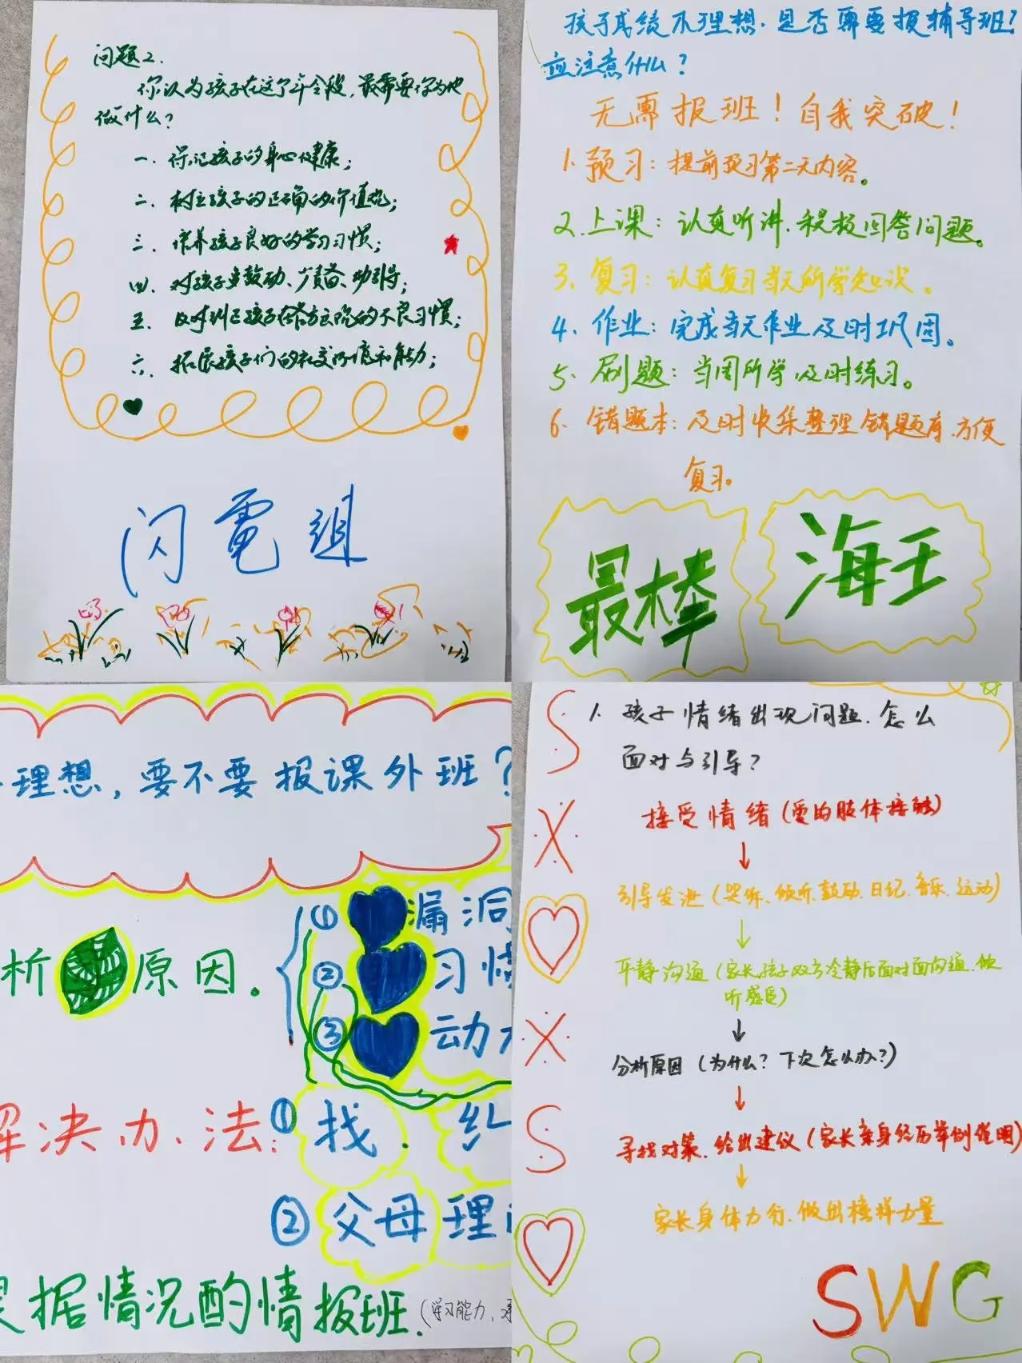 问题2.
你认为孩子在这个年令段,最需要你为他
做什么?
一、保证孩子的身心健康;
二、树立孩子的正确的价值观;
三、培养孩子良好的学习习惯;
四、对孩子多鼓励、少责备、功引导;
五、及时纠正孩子在各方面的不良习惯;
六、拓展孩子们的社交环境和能力;
闪電組
孩子成绩不理想.是否需要报辅导班?
应注意什么?
无需报班!自我突破!
1.预习:提前预习第二天内容。
2.上课:认真听讲.积极回答问题。
3.复习:认真复习当天所学知识。
4.作业:完成当天作业及时巩固。
5.刷题:当周所学及时练习。
6.错题本:及时收集整理错题库.方便
复习。
最棒
海王
理想,要不要报课外班?
析 原因。
① 漏洞
② 习惯
③ 动力
解决办法:① 找.
② 父母理
据情况酌情报班.(学习能力、
1.孩子情绪出现问题.怎么
面对与引导?
接受情绪(爱的肢体接触)
引导发泄(哭诉、倾听、鼓励、日记、音乐、运动)
平静沟通(家长孩子双方冷静后面对面沟通.倾
听感受)
分析原因(为什么?下次怎么办?)
寻找对策.给出建议(家长亲身经历举例说明)
家长身体力行.做出榜样力量
S
X
X
S
SWG